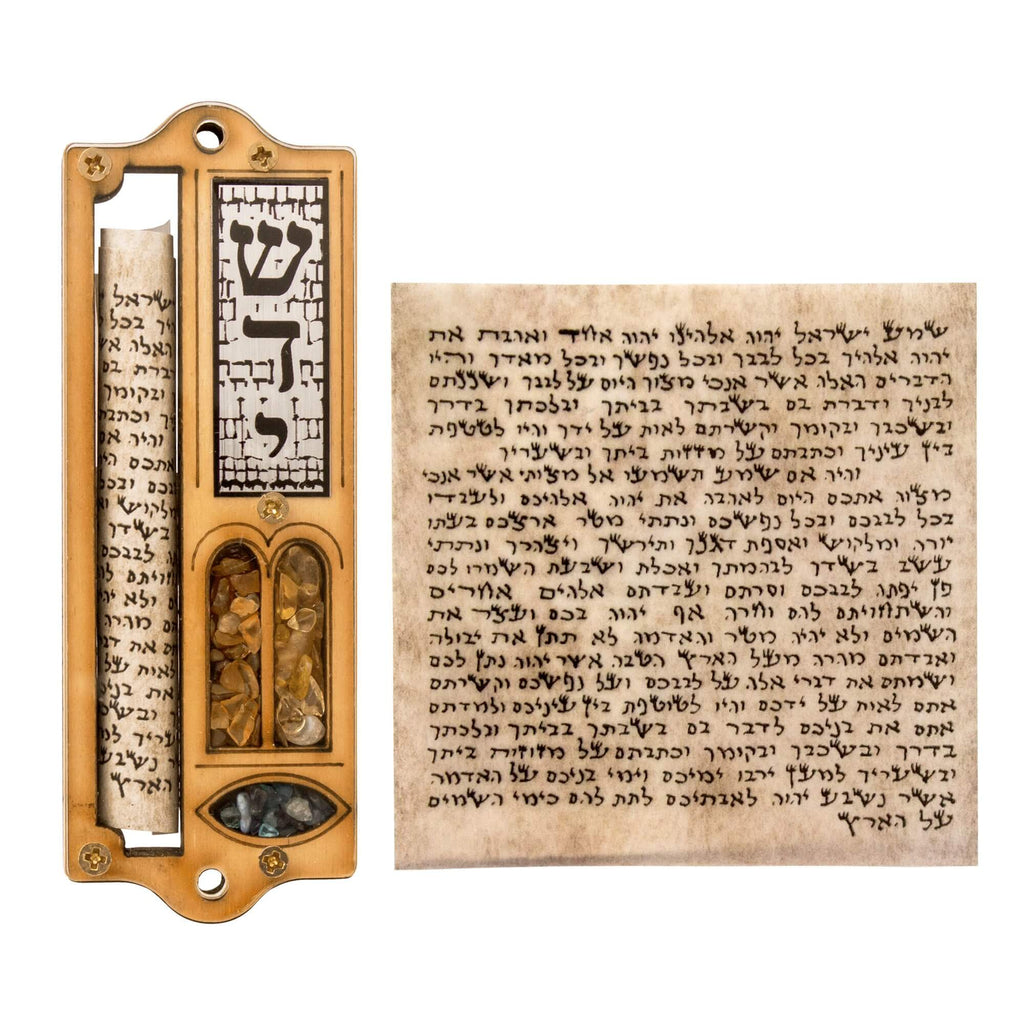 ש
ד
י
שראל
בכל
האלה
ברת בם
ובקומך
וכתב
והיה אם
אתכם
בכם
מלקוש
בשדך
לבבכם
ויתם
ולא יהי
מהרה
את דבר
לאות על
את בני
ובש
עריך
נשבע
הארץ
שמע ישראל יהוה אלהינו יהוה אחד ואהבת את
יהוה אלהיך בכל לבבך ובכל נפשך ובכל מאדך והיו
הדברים האלה אשר אנכי מצוך היום על לבבך ושננתם
לבניך ודברת בם בשבתך בביתך ובלכתך בדרך
ובשכבך ובקומך וקשרתם לאות על ידך והיו לטטפת
בין עיניך וכתבתם על מזזות ביתך ובשעריך
והיה אם שמע תשמעו אל מצותי אשר אנכי
מצוה אתכם היום לאהבה את יהוה אלהיכם ולעבדו
בכל לבבכם ובכל נפשכם ונתתי מטר ארצכם בעתו
יורה ומלקוש ואספת דגנך ותירשך ויצהרך ונתתי
עשב בשדך לבהמתך ואכלת ושבעת השמרו לכם
פן יפתה לבבכם וסרתם ועבדתם אלהים אחרים
והשתחויתם להם וחרה אף יהוה בכם ועצר את
השמים ולא יהיה מטר והאדמה לא תתן את יבולה
ואבדתם מהרה מעל הארץ הטבה אשר יהוה נתן לכם
ושמתם את דברי אלה על לבבכם ועל נפשכם וקשרתם
אתם לאות על ידכם והיו לטוטפת בין עיניכם ולמדתם
אתם את בניכם לדבר בם בשבתך בביתך ובלכתך
בדרך ובשכבך ובקומך וכתבתם על מזוזות ביתך
ובשעריך למען ירבו ימיכם וימי בניכם על האדמה
אשר נשבע יהוה לאבתיכם לתת להם כימי השמים
על הארץ